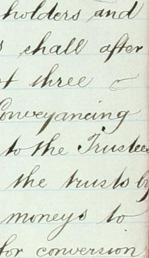 holders and
shall after
three
Conveyancing
to the Trustees
the trusts by
moneys to
for conversion